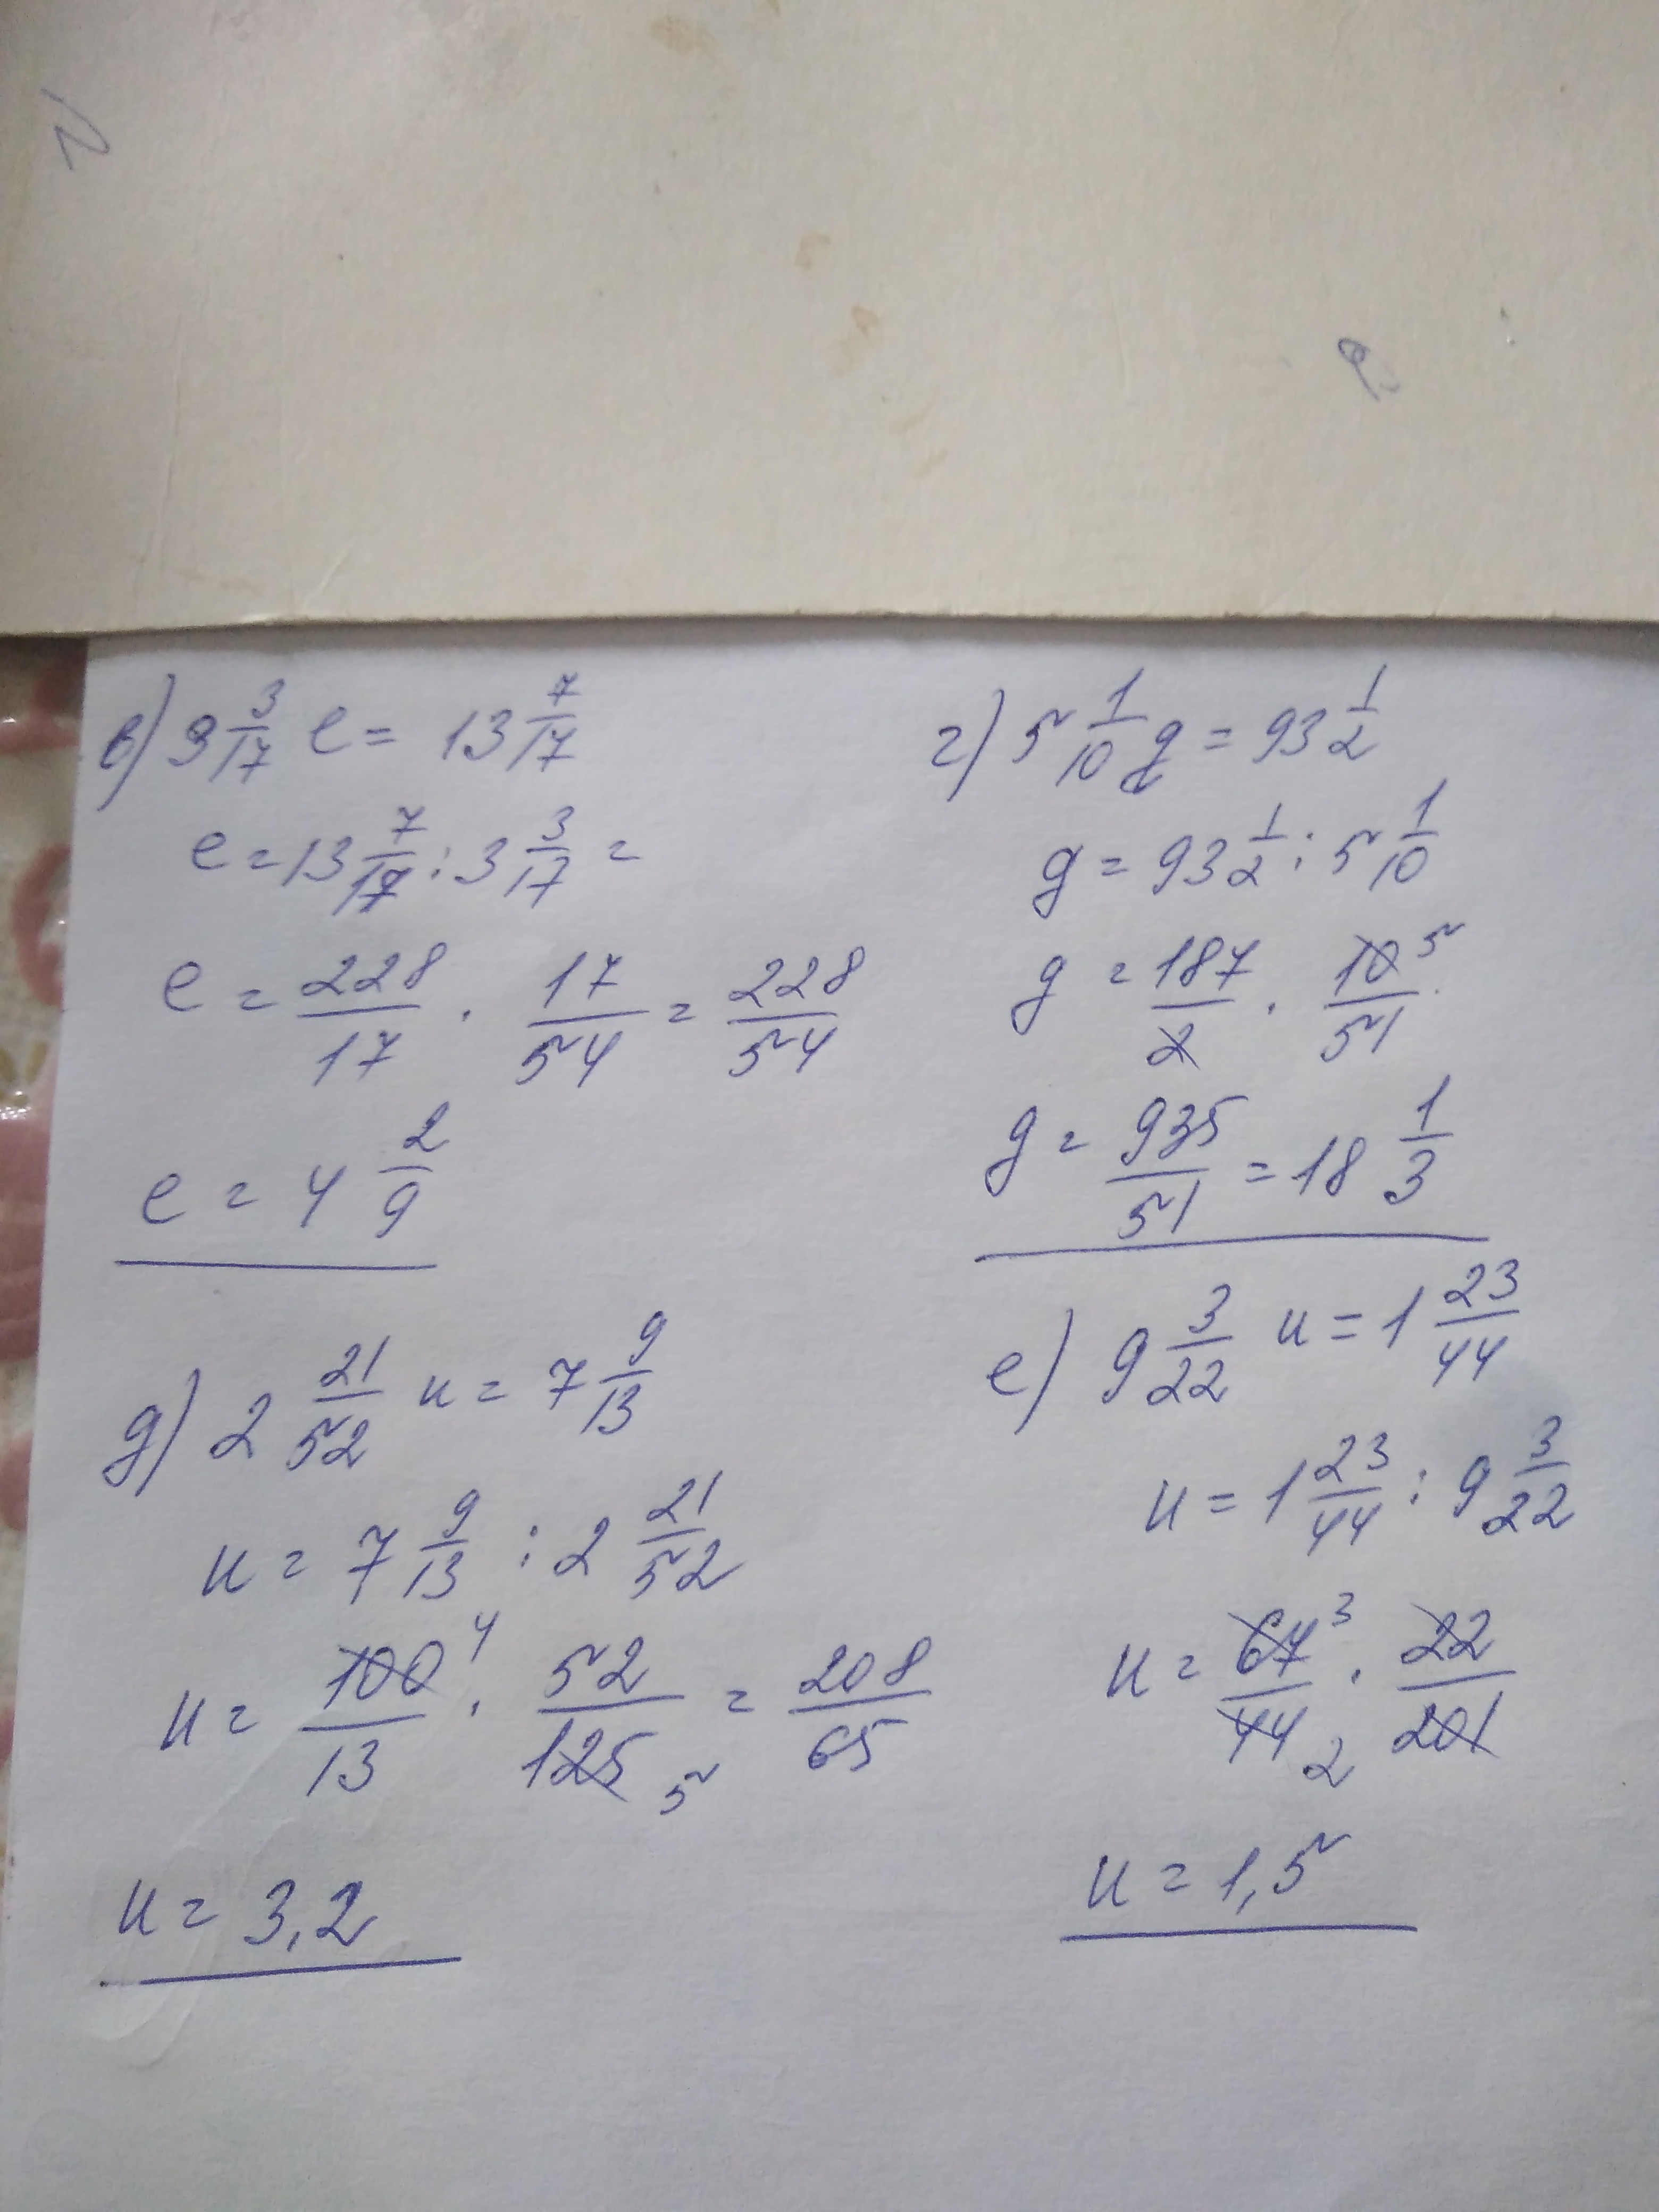 в) 3 3/17 е = 13 7/17
е = 13 7/17 : 3 3/17 =
е = 228/17 · 17/54 = 228/54
е = 4 2/9
г) 5 1/10 g = 93 1/2
g = 93 1/2 : 5 1/10
g = 187/2 · 10/51 5
g = 935/51 = 18 1/3
д) 2 21/52 и = 7 9/13
и = 7 9/13 : 2 21/52
и = 100/13 4 · 52/125 5 = 208/65
и = 3,2
е) 9 3/22 и = 1 23/44
и = 1 23/44 : 9 3/22
и = 67/44 3 2 · 22/201
и = 1,5